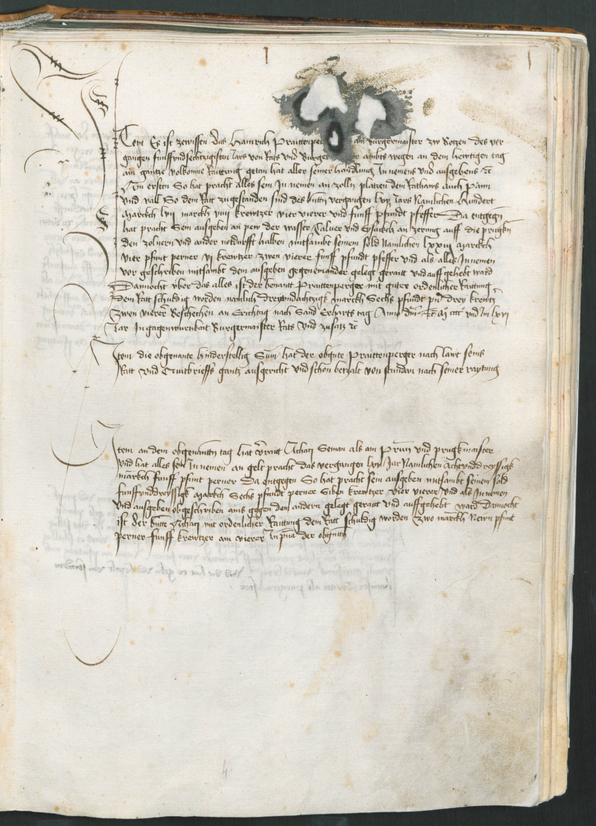 Item Es ist zewissen das Hainrich Prauttenper als Burgermaister zw Botzen des ver
gangen funffundsechtzigisten Jars von Rats und Burger ambts wegen an dem hewtigen tag
ain gantze volkomne Raittung getan hat aller seiner handlung Innemens und ausgebens etc
Am ersten So hat pracht alles sein Innemen an zollen platzen dem Rathaus auch
und vall So dem Rat zugestanden sind des kurtz vergangen lxv Jars Namlichen hundert
march lvij march kreutzer vier vierer und funff pfundt pfeffer Da entgegen
hat pracht Sein ausgeben an pew der wasser an zerung auff die prugken
den zolnern und ander notdurfft halben mitsambt seinem sold Namlichen lxxiij march
vier pfunt perner vj kreutzer zwen vierer funff pfundt pfeffer und als alles Innemen
vor geschriben mitsambt dem ausgeben gegeneinander gelegt geraitt und auffgehebt ward
Dannocht uber das alles ist der benant Prauttenperger mit guter ordenlicher Raittung
dem Rat schuldig worden namlich dreyundachtzigk march Sechs pfundt pner drey kreutzer
zwen vierer Beschehen an Erichtag nach Sand Erharts tag Anno dm etc M cccc und Im lxvj
Jar In gegenwurtikait Burgermaister Rats und zusatz etc
Item die obgenante hinderstellig Sum hat der obgnte Prauttenperger nach laut seins
Rait und Quitbrieffs gantz ausgericht und schon betzalt von stundan nach seiner raytung
Item an dem obgenanten tag hat geraitt Achatz Seman als ain Paw und prugkmaister
und hat alles sein Innemen an gelt pracht das vergangen lxv Jar Namlichen achtunddreyssigk
march funff pfunt perner Da entgegen So hat pracht sein ausgeben mitsambt seinem sold
funffunddreyssigk march Sechs pfundt perner Siben kreutzer vier vierer und als Innemen
und ausgeben obgeschriben ains gegen dem andern gelegt geraitt und auffgehebt ward Dannocht
ist der benante Achatz mit ordenlicher Raittung dem Rat schuldig worden zwo march Newn pfunt
perner funff kreutzer ain vierer In pnia der obgnten